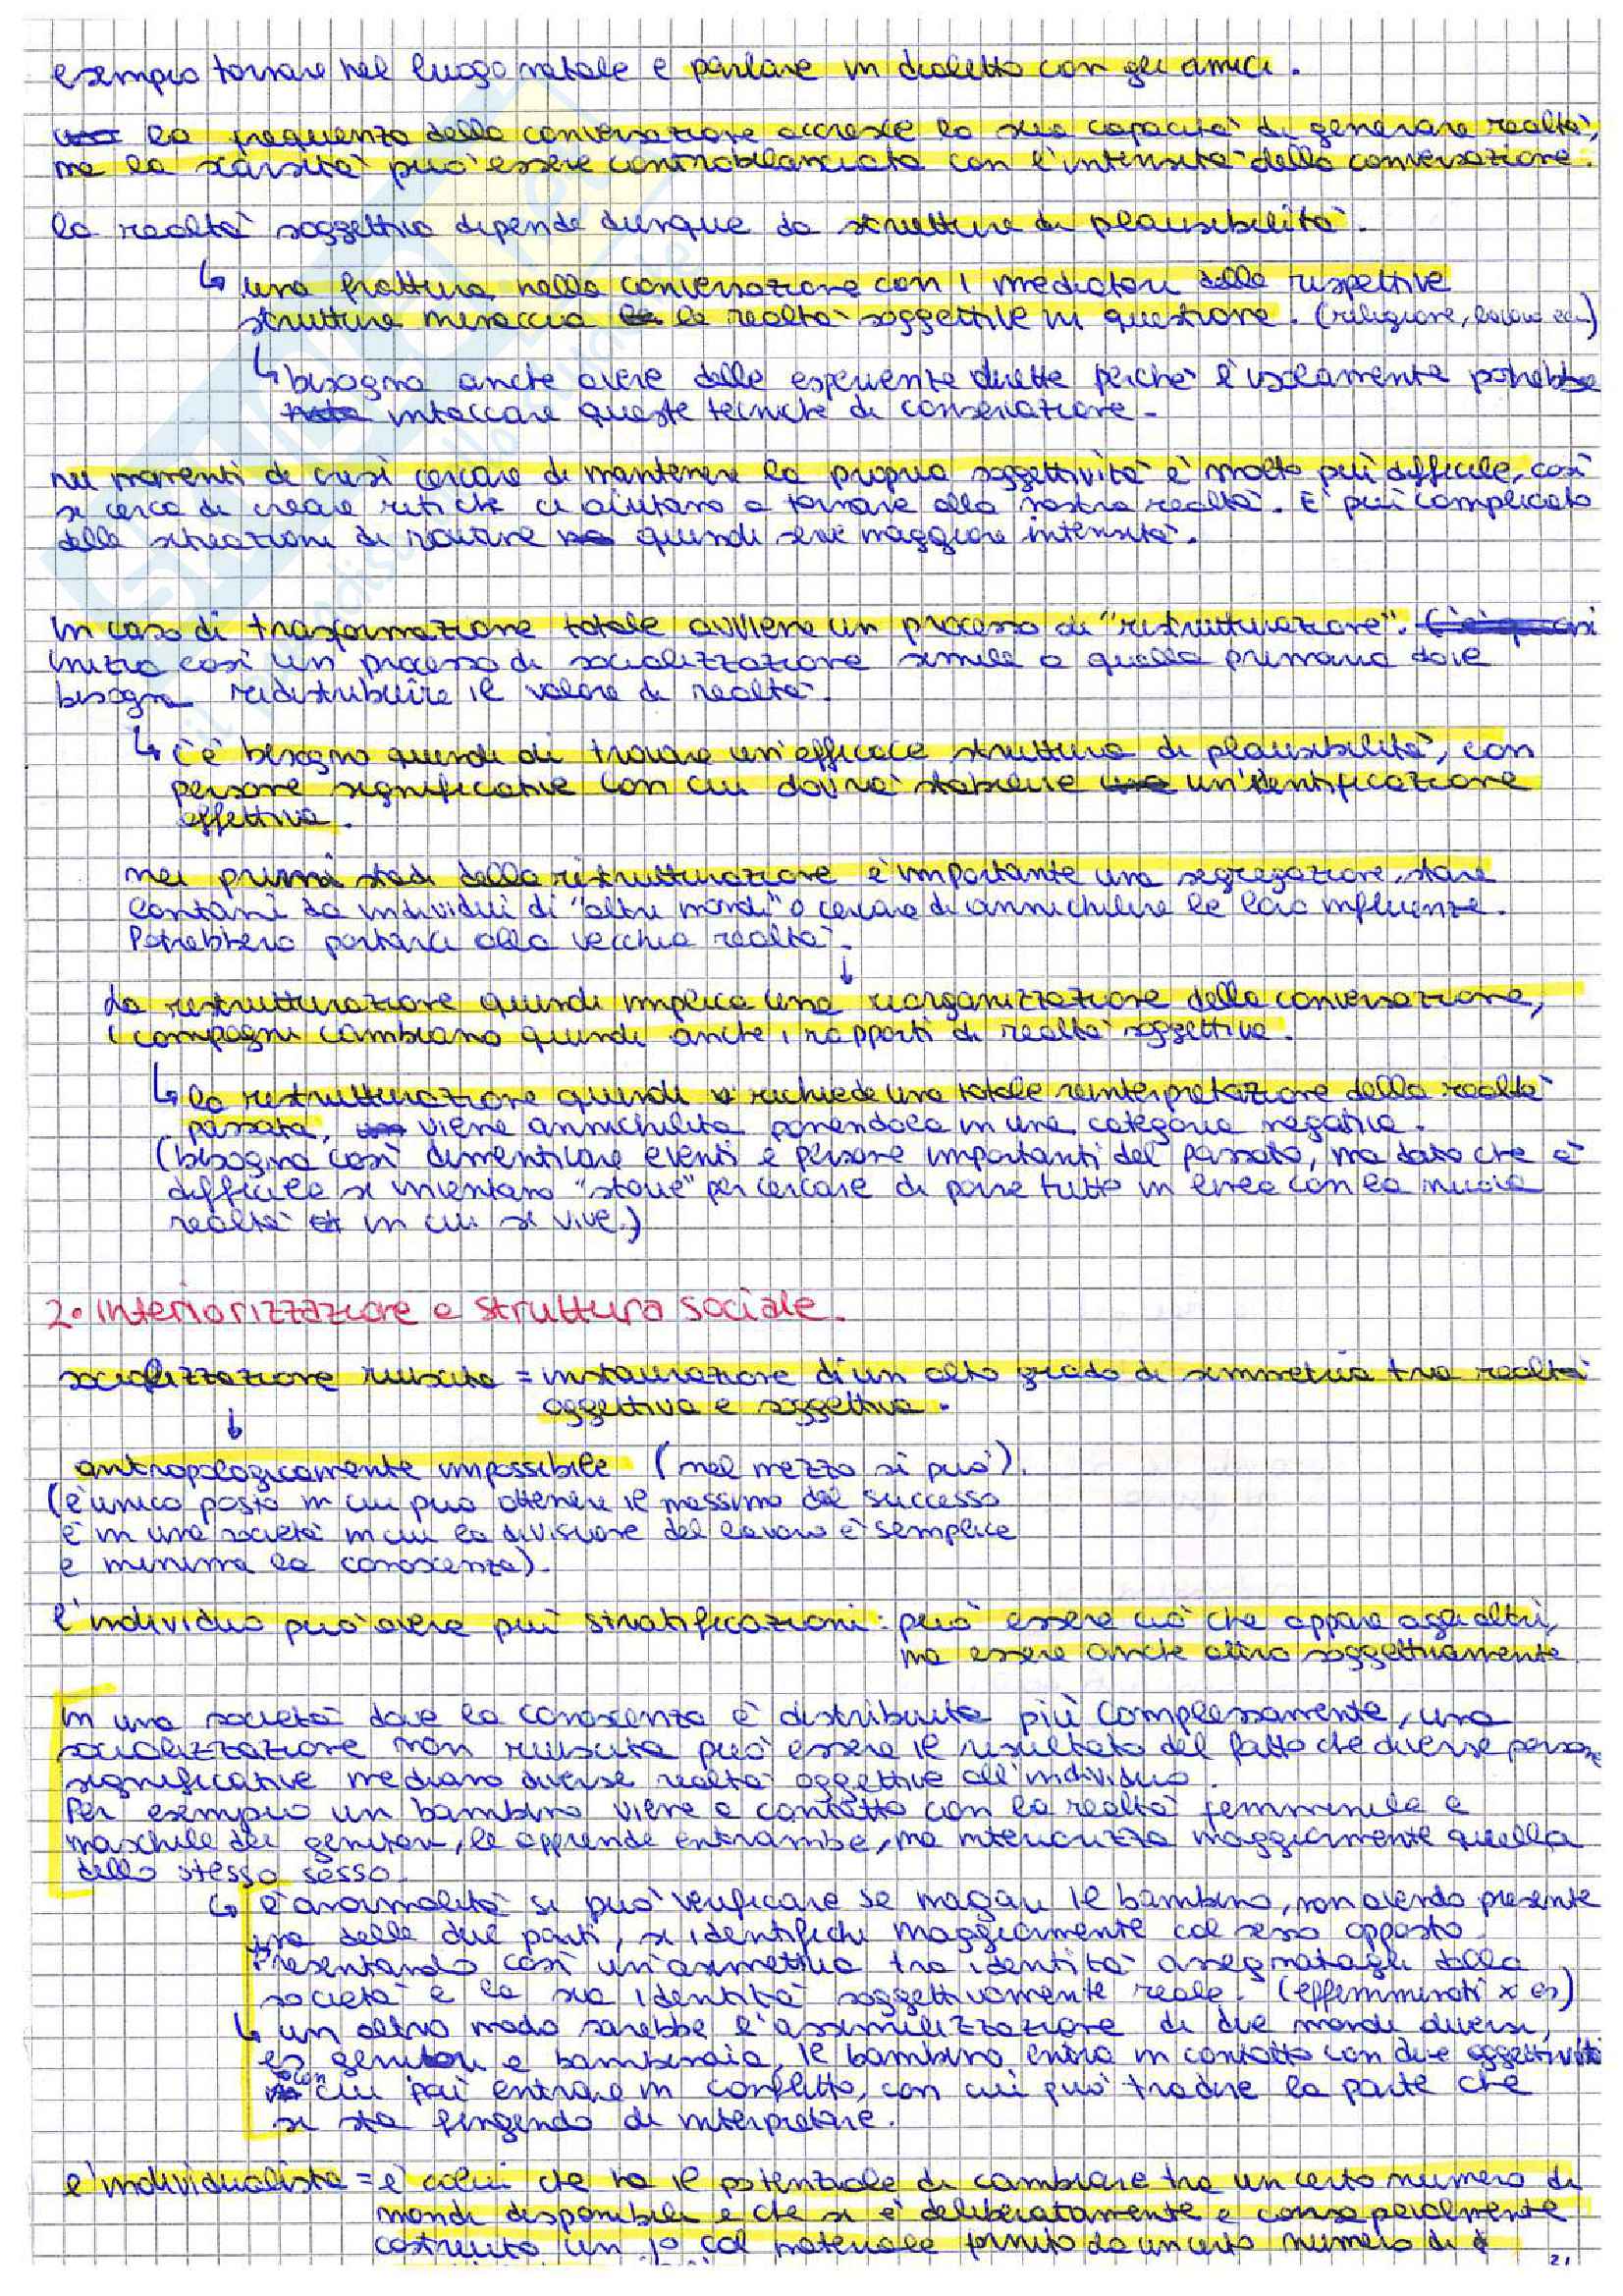 esempio tornare nel luogo natale e parlare in dialetto con gli amici.
la frequenza della conversazione accresce la sua capacità di generare realtà,
ma la scarsità può essere controbilanciata con l'intensità della conversazione.
la realtà soggettiva dipende dunque da strutture di plausibilità.
↳ una frattura nella conversazione con i mediatori delle rispettive
strutture minaccia le realtà soggettive in questione. (religione, lavoro ecc.)
↳ bisogna anche avere delle esperienze dirette perchè l'isolamento potrebbe
intaccare queste tecniche di conservazione.
nei momenti di crisi cercare di mantenere la propria soggettività è molto più difficile, così
si cerca di creare riti che ci aiutano a tornare alla nostra realtà. E' più complicato
delle situazioni di routine quindi serve maggiore intensità.
In caso di trasformazione totale avviene un processo di "ristrutturazione".
inizia così un processo di socializzazione simile a quella primaria dove
bisogna ridistribuire il valore di realtà.
↳ c'è bisogno quindi di trovare un'efficace struttura di plausibilità, con
persone significative con cui dovrà stabilire un'identificazione
affettiva.
nei primi stadi della ristrutturazione è importante una segregazione, stare
lontani da individui di "altri mondi" o cercare di annichilire le loro influenze.
Potrebbero portarci alla vecchia realtà.
↓
La ristrutturazione quindi implica una riorganizzazione della conversazione,
i compagni cambiano quindi anche i rapporti di realtà soggettiva.
↳ la ristrutturazione quindi richiede una totale reinterpretazione della realtà
passata, viene annichilita ponendola in una categoria negativa.
(bisogna così dimenticare eventi e persone importanti del passato, ma dato che è
difficile si inventano "storie" per cercare di porre tutto in linea con la nuova
realtà in cui si vive.)
2. Interiorizzazione e struttura sociale.
socializzazione riuscita = instaurazione di un alto grado di simmetria tra realtà
oggettiva e soggettiva.
↓
antropologicamente impossibile (nel mezzo si può).
(l'unico posto in cui può ottenere il massimo del successo
è in una società in cui la divisione del lavoro è semplice
e minima la conoscenza).
l'individuo può avere più stratificazioni: può essere ciò che appare agli altri,
ma essere anche altro soggettivamente.
In una società dove la conoscenza è distribuita più complessamente, una
socializzazione non riuscita può essere il risultato del fatto che diverse persone
significative mediano diverse realtà oggettive all'individuo.
Per esempio un bambino viene a contatto con la realtà femminile e
maschile dei genitori, le apprende entrambe, ma interiorizza maggiormente quella
dello stesso sesso.
↳ l'anormalità si può verificare se magari il bambino, non avendo presente
una delle due parti, si identifichi maggiormente col sesso opposto.
Presentando così un'asimmetria tra identità assegnatagli dalla
società e la sua identità soggettivamente reale. (effemminati x es)
↳ un altro modo sarebbe l'assimilizzazione di due mondi diversi,
es genitori e bambinaia, il bambino entra in contatto con due oggettività
con cui poi entrare in conflitto, con cui può tradire la parte che
si sta fingendo di interpretare.
l'individualista = è colui che ha il potenziale di cambiare tra un certo numero di
mondi disponibili e che si è deliberatamente e consapevolmente
costruito un io col materiale fornito da un certo numero di
21